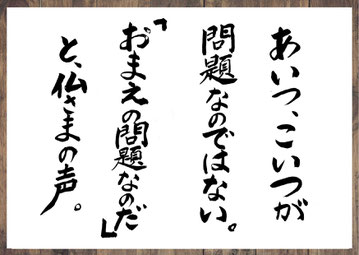 あいつ、こいつが
問題なのではない。
「おまえの問題なのだ」
と、仏さまの声。